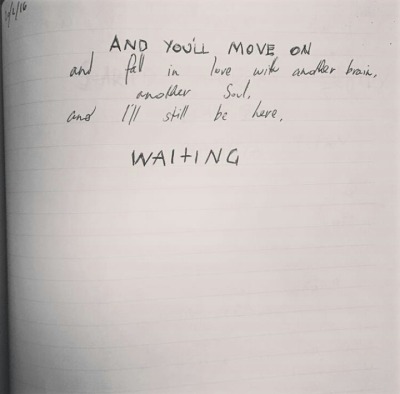 9/2/16
AND YOU'LL MOVE ON
and fall in love with another brain,
another Soul,
and I'll still be here,
WAITING